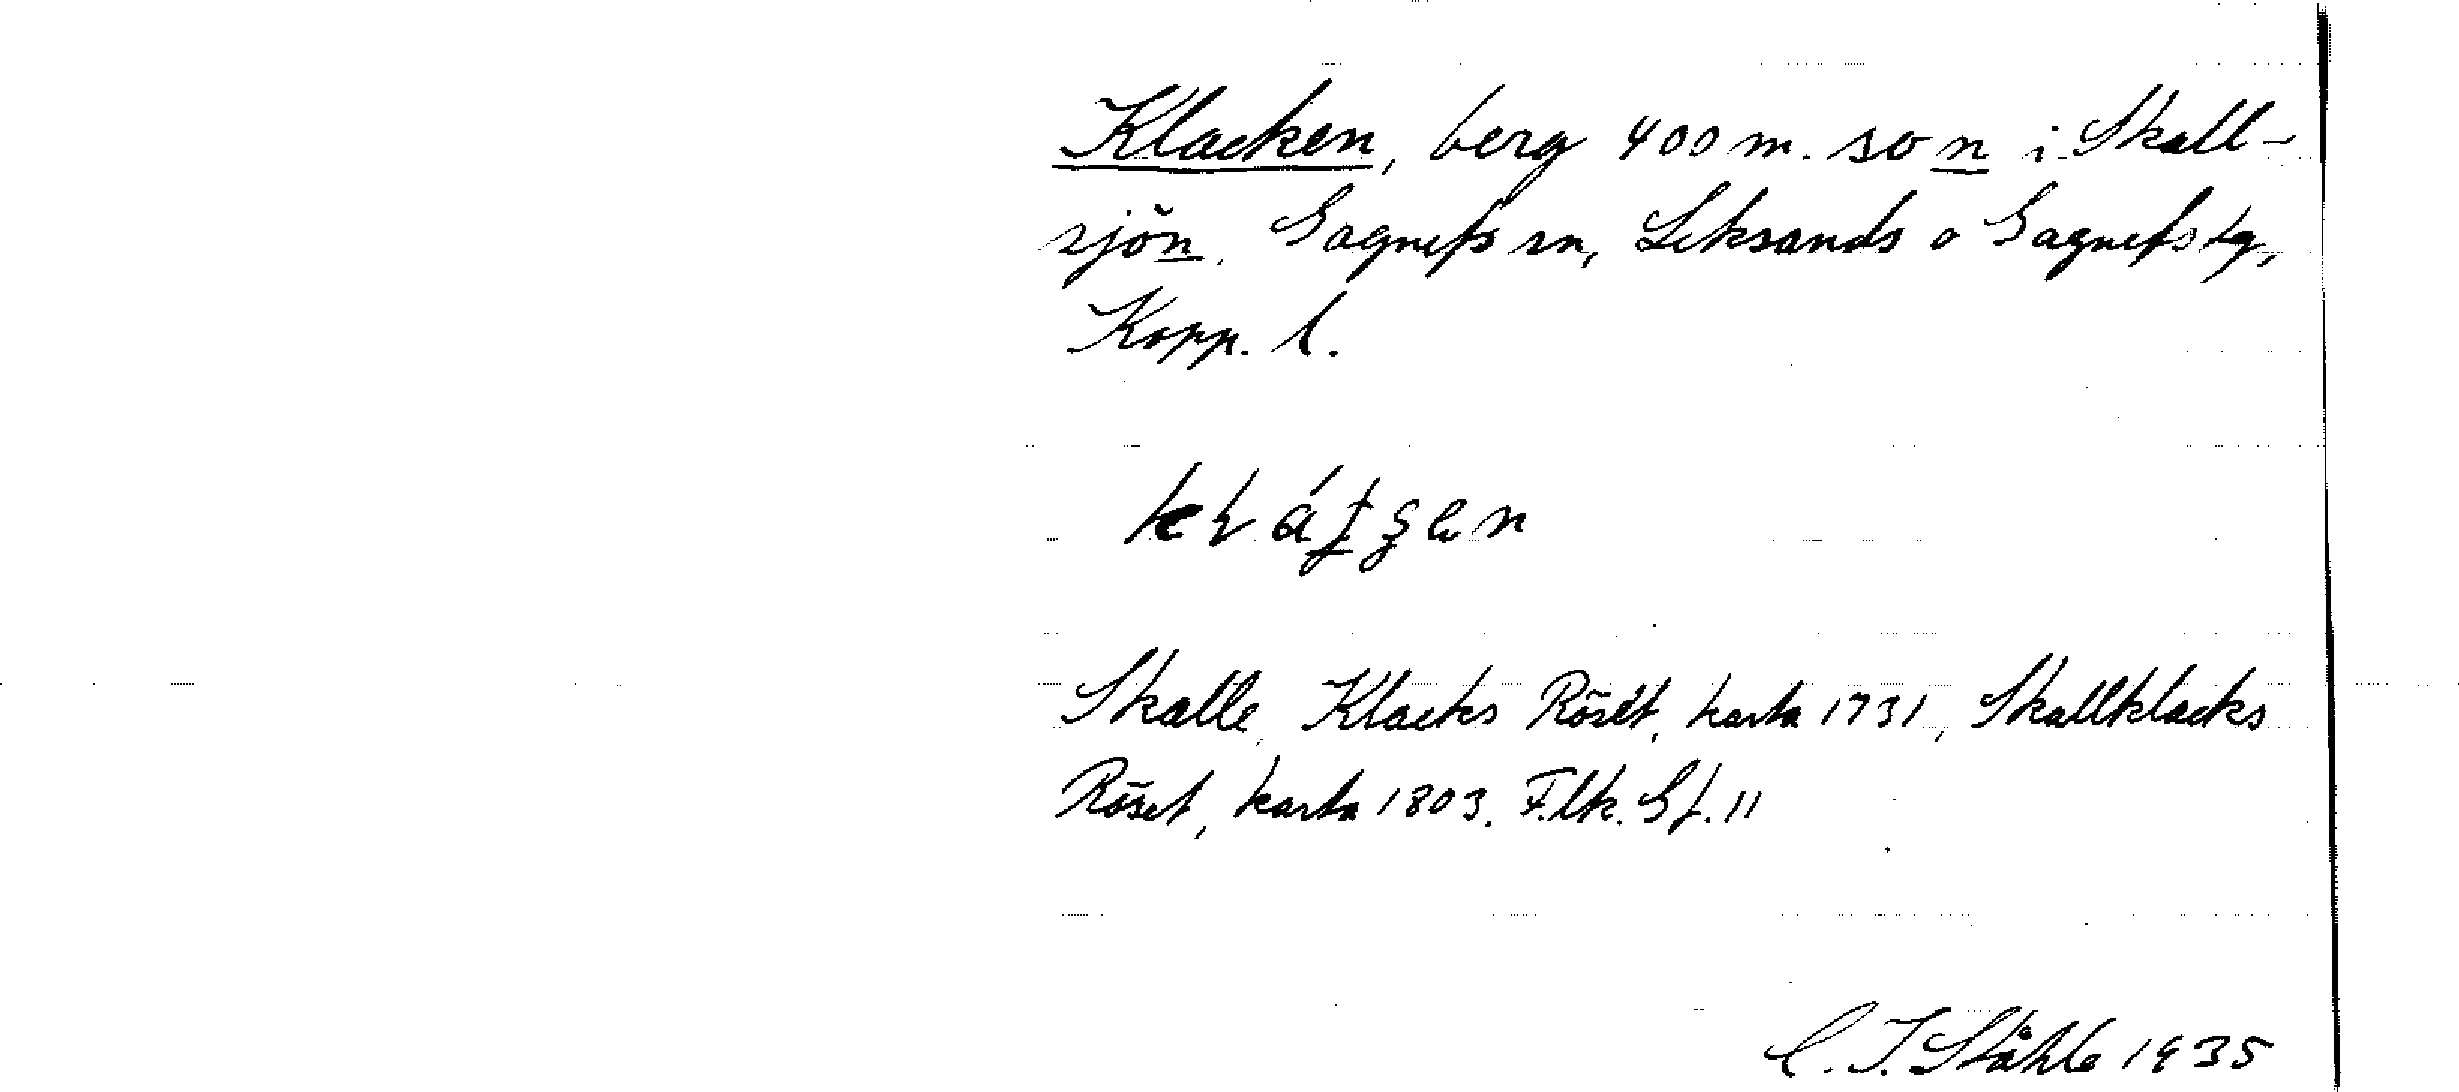 Klacken, berg 400 m. so n i Skall-
sjön. Gagnefs sn, Leksands o Gagnefs tg,
Kopp. l.
Skalle, Klacks Röset, karta 1731, Skallklacks
Röset, karta 1803. F.lk. Gf. 11
C. I. Ståhle 1935